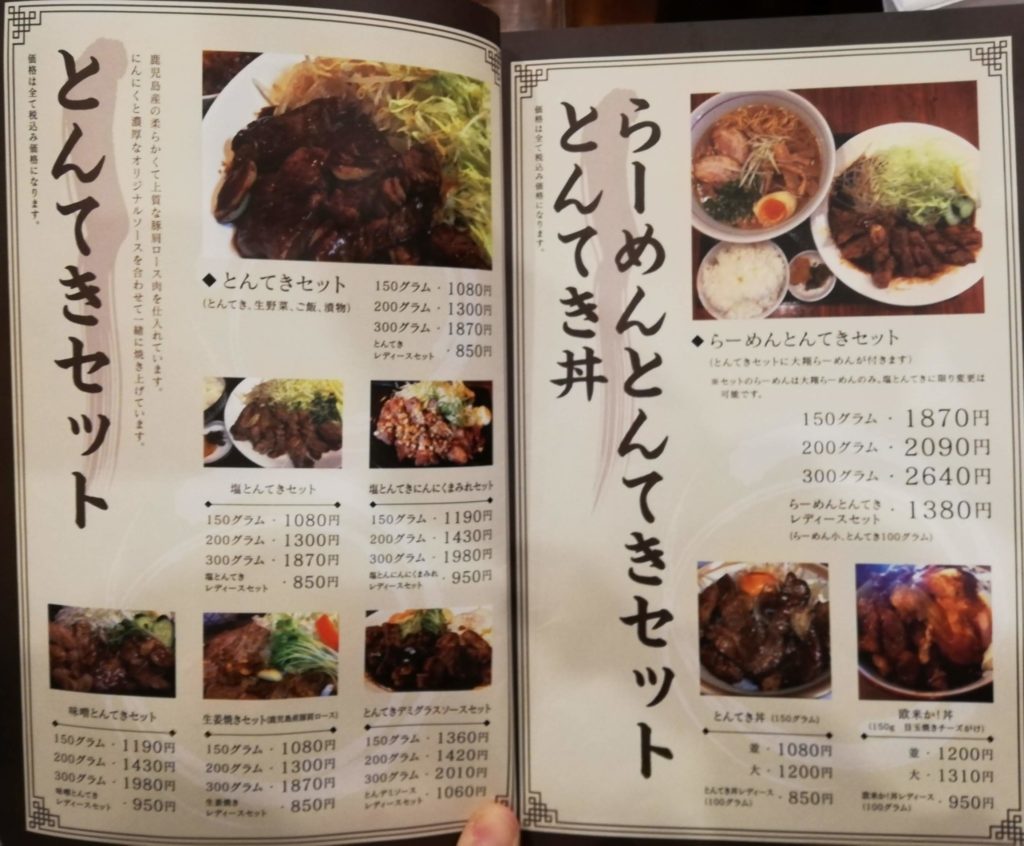 とんてきセット
鹿児島産の柔らかくて上質な豚肩ロース肉を仕入れています。
にんにくと濃厚なオリジナルソースを合わせて一緒に焼き上げています。
価格は全て税込み価格になります。
◆とんてきセット
(とんてき、生野菜、ご飯、漬物)
150グラム・1080円
200グラム・1300円
300グラム・1870円
とんてき
レディースセット・850円
塩とんてきセット
150グラム・1080円
200グラム・1300円
300グラム・1870円
塩とんてき
レディースセット・850円
塩とんてきにんにくまみれセット
150グラム・1190円
200グラム・1430円
300グラム・1980円
塩とんにんにくまみれ
レディースセット・950円
味噌とんてきセット
150グラム・1190円
200グラム・1430円
300グラム・1980円
味噌とんてき
レディースセット・950円
生姜焼きセット(鹿児島産豚肩ロース)
150グラム・1080円
200グラム・1300円
300グラム・1870円
生姜焼き
レディースセット・850円
とんてきデミグラスソースセット
150グラム・1360円
200グラム・1420円
300グラム・2010円
とんデミソース
レディースセット・1060円
らーめんとんてきセット
とんてき丼
価格は全て税込み価格になります。
◆らーめんとんてきセット
(とんてきセットに大翔らーめんが付きます)
※セットのらーめんは大翔らーめんのみ。塩とんてきに限り変更は
可能です。
150グラム・1870円
200グラム・2090円
300グラム・2640円
らーめんとんてき
レディースセット・1380円
(らーめん小、とんてき100グラム)
とんてき丼(150グラム)
並・1080円
大・1200円
とんてき丼レディース
(100グラム)・850円
欧米か!丼
(150g 目玉焼きチーズがけ)
並・1200円
大・1310円
欧米か!丼レディース
(100グラム)・950円